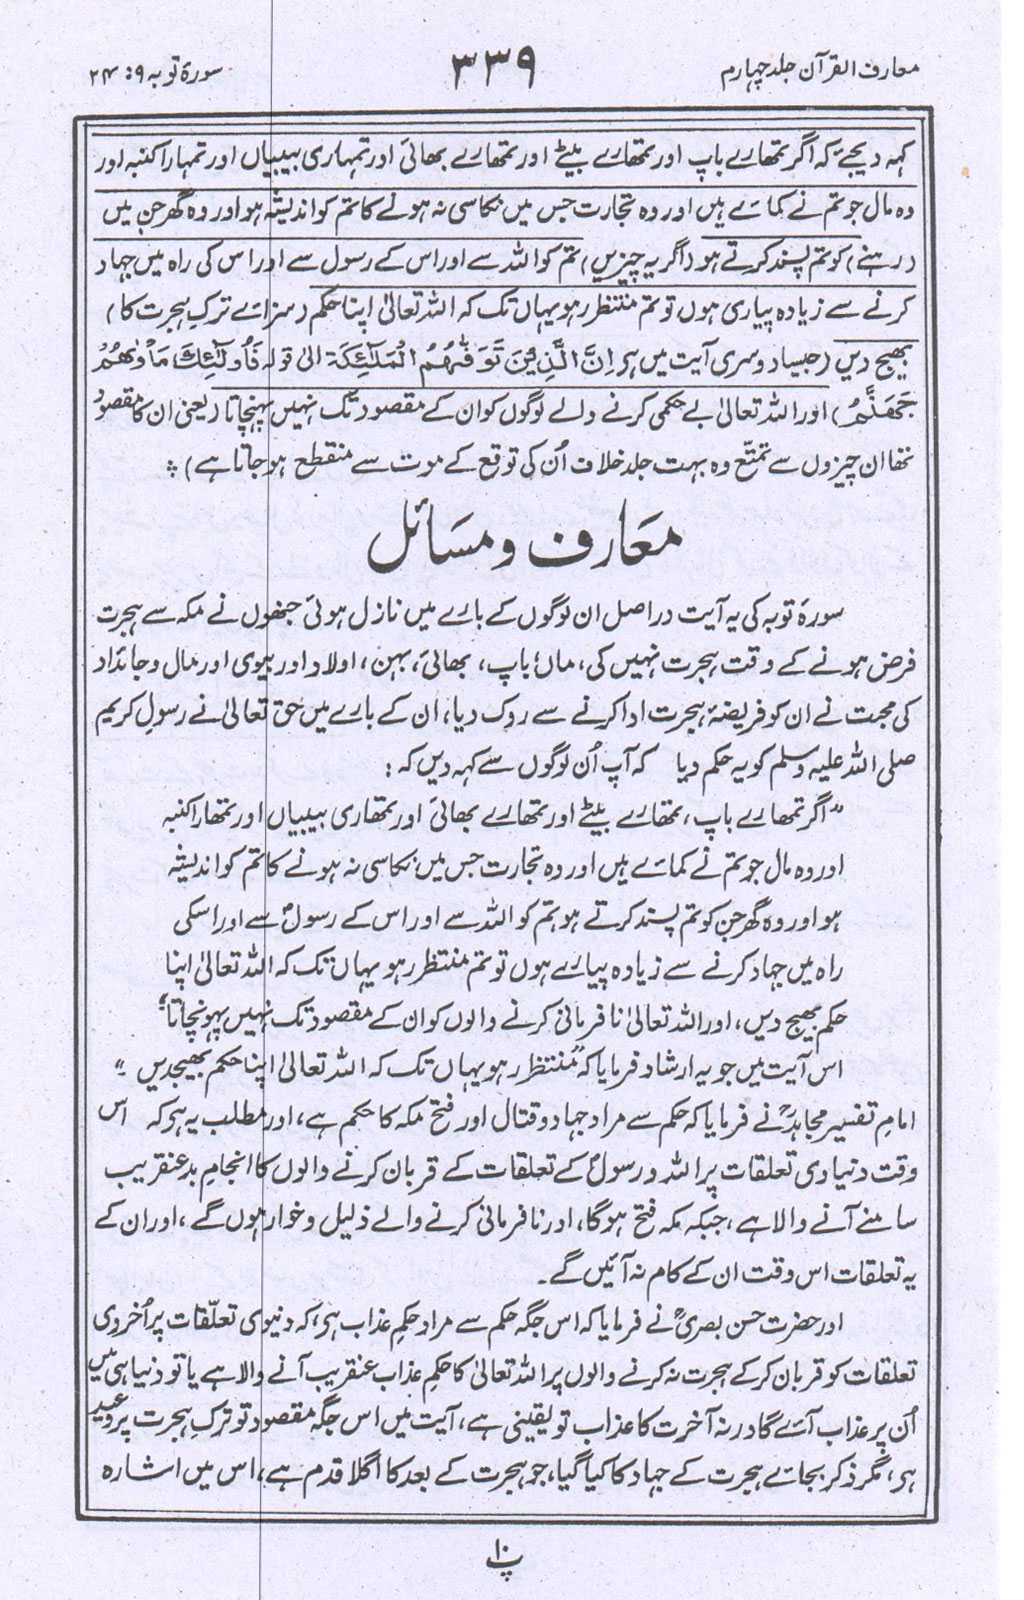 معارف القرآن جلد چہارم
۳۳۹
سورۂ توبہ ۹: ۲۴
کہہ دیجئے کہ اگر تمھارے باپ اور تمھارے بیٹے اور تمھارے بھائی اور تمہاری بیبیاں اور تمہارا کنبہ اور
وہ مال جو تم نے کمائے ہیں اور وہ تجارت جس میں نکاسی نہ ہونے کا تم کو اندیشہ ہو اور وہ گھر جن میں
(رہنے) کو تم پسند کرتے ہو (اگر یہ چیزیں) تم کو اللہ سے اور اس کے رسول سے اور اس کی راہ میں جہاد
کرنے سے زیادہ پیاری ہوں تو تم منتظر رہو یہاں تک کہ اللہ تعالیٰ اپنا حکم (سزائے ترکِ ہجرت کا)
بھیج دیں (جیسا دوسری آیت میں ہر اِنَّ الَّذِیْنَ تَوَفّٰھُمُ الْمَلٰٓئِکَۃُ الیٰ قولہ فَاُولٰٓئِکَ مَاْوٰىھُمْ
جَھَنَّمُ) اور اللہ تعالیٰ بے حکمی کرنے والے لوگوں کو ان کے مقصود تک نہیں پہنچاتا (یعنی ان کا مقصود
تھا ان چیزوں سے تمتّع وہ بہت جلد خلاف اُن کی توقع کے موت سے منقطع ہو جاتا ہے) ؛
مَعَارف و مسَائل
سورۂ توبہ کی یہ آیت دراصل ان لوگوں کے بارے میں نازل ہوئی جنھوں نے مکہ سے ہجرت
فرض ہونے کے وقت ہجرت نہیں کی، ماں، باپ، بھائی، بہن، اولاد اور بیوی اور مال و جائداد
کی محبت نے ان کو فریضۂ ہجرت ادا کرنے سے روک دیا، ان کے بارے میں حق تعالیٰ نے رسولِ کریم
صلی اللہ علیہ وسلم کو یہ حکم دیا کہ آپ اُن لوگوں سے کہہ دیں کہ:
"اگر تمھارے باپ، تمھارے بیٹے اور تمھارے بھائی اور تمھاری بیبیاں اور تمھارا کنبہ
اور وہ مال جو تم نے کمائے ہیں اور وہ تجارت جس میں نکاسی نہ ہونے کا تم کو اندیشہ
ہو اور وہ گھر جن کو تم پسند کرتے ہو تم کو اللہ سے اور اس کے رسولؐ سے اور اسکی
راہ میں جہاد کرنے سے زیادہ پیارے ہوں تو تم منتظر رہو یہاں تک کہ اللہ تعالیٰ اپنا
حکم بھیج دیں، اور اللہ تعالیٰ نافرمانی کرنے والوں کو ان کے مقصود تک نہیں پہونچاتا"
اس آیت میں جو یہ ارشاد فرمایا کہ "منتظر رہو یہاں تک کہ اللہ تعالیٰ اپنا حکم بھیجدیں"
امامِ تفسیر مجاہدؒ نے فرمایا کہ حکم سے مراد جہاد و قتال اور فتح مکہ کا حکم ہے، اور مطلب یہ ہو کہ اس
وقت دنیاوی تعلقات پر اللہ و رسولؐ کے تعلقات کے قربان کرنے والوں کا انجامِ بد عنقریب
سامنے آنے والا ہے، جبکہ مکہ فتح ہوگا، اور نافرمانی کرنے والے ذلیل و خوار ہوں گے، اور ان کے
یہ تعلقات اس وقت ان کے کام نہ آئیں گے۔
اور حضرت حسن بصریؒ نے فرمایا کہ اس جگہ حکم سے مراد حکمِ عذاب ہی، کہ دنیوی تعلّقات پر اُخروی
تعلقات کو قربان کر کے ہجرت نہ کرنے والوں پر اللہ تعالیٰ کا حکمِ عذاب عنقریب آنے والا ہے یا تو دنیا ہی میں
اُن پر عذاب آئے گا ورنہ آخرت کا عذاب تو یقینی ہے، آیت میں اس جگہ مقصود تو ترکِ ہجرت پر وعید
ہی، مگر ذکر بجائے ہجرت کے جہاد کا کیا گیا، جو ہجرت کے بعد کا اگلا قدم ہے، اس میں اشارہ
پ۱۰